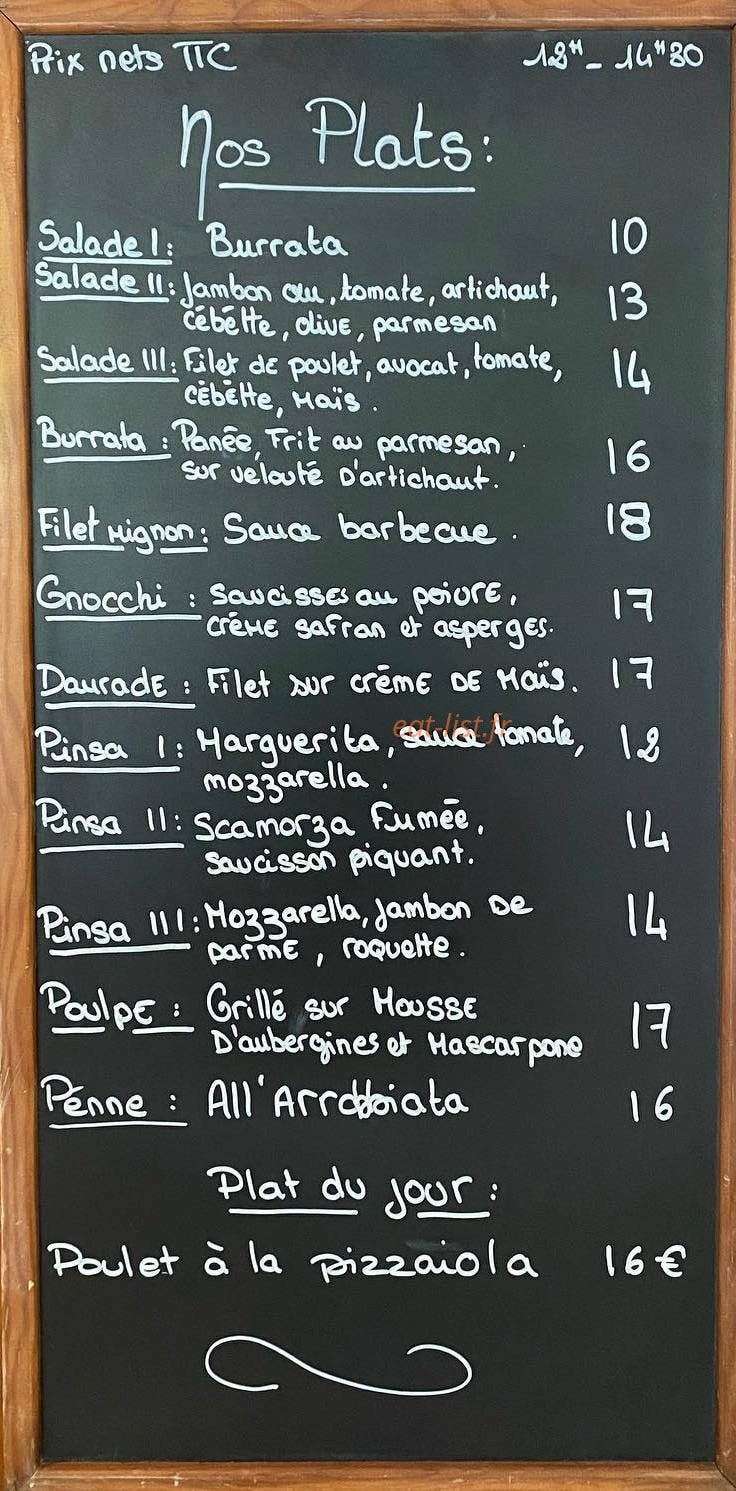 Prix nets TTC 12H - 14H30
Nos Plats :
Salade I : Burrata 10
Salade II : Jambon cru, tomate, artichaut, 13
cébette, olive, parmesan
Salade III : Filet de poulet, avocat, tomate, 14
cébette, maïs.
Burrata : Panée, Frit au parmesan, 16
sur velouté d'artichaut.
Filet mignon : Sauce barbecue. 18
Gnocchi : saucisses au poivre, 17
crème safran et asperges.
Daurade : Filet sur crème de maïs. 17
eat-list.fr
Pinsa I : Marguerita, sauce tomate, 12
mozzarella.
Pinsa II : Scamorza Fumée, 14
saucisson piquant.
Pinsa III : Mozzarella, jambon de 14
parme, roquette.
Poulpe : Grillé sur Mousse 17
D'aubergines et Mascarpone
Penne : All'Arrabbiata 16
Plat du jour :
Poulet à la pizzaiola 16€